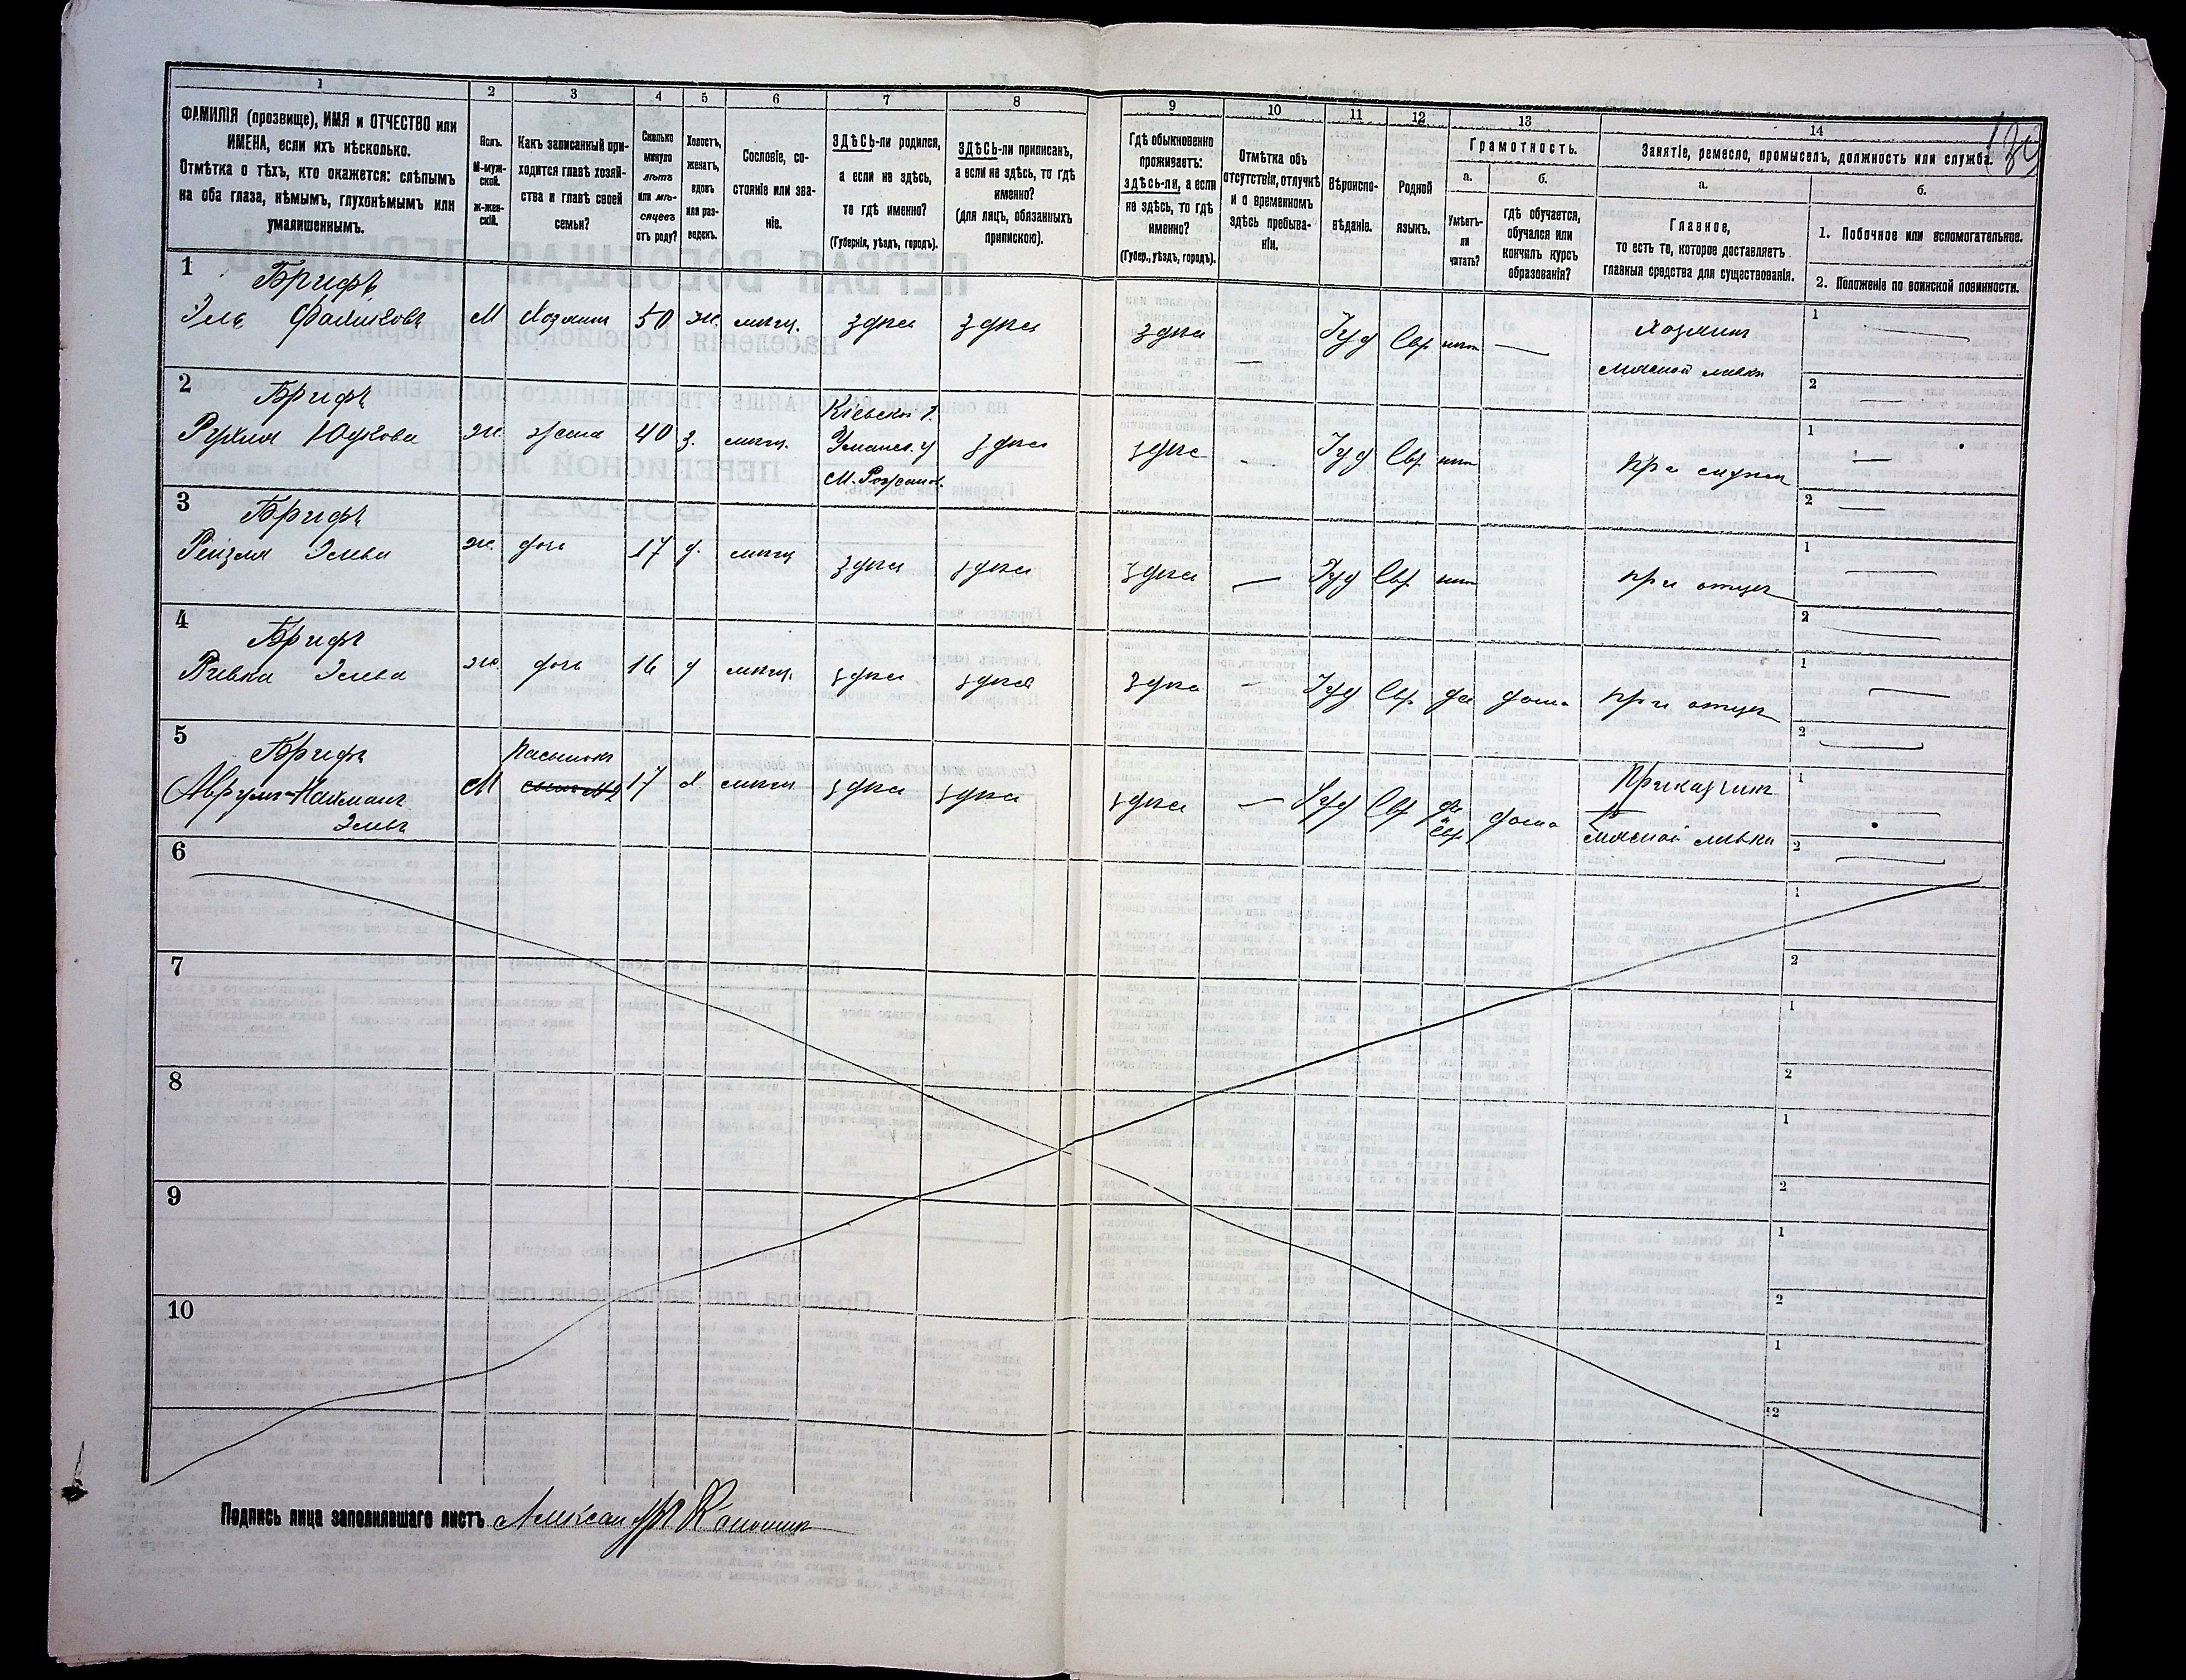 1 2 3 4 5 6 7 8 9 10 11 12 13 14
ФАМИЛІЯ (прозвище), ИМЯ и ОТЧЕСТВО или
ИМЕНА, если ихъ нѣсколько.
Отмѣтка о тѣхъ, кто окажется: слѣпымъ
на оба глаза, нѣмымъ, глухонѣмымъ или
умалишеннымъ.
Полъ.
М-муж-
ской.
ж-жен-
скій.
Какъ записанный при-
ходится главѣ хозяй-
ства и главѣ своей
семьи?
Сколько
минуло
лѣтъ
или мѣ-
сяцевъ
отъ роду?
Холостъ,
женатъ,
вдовъ
или раз-
веденъ.
Сословіе, со-
стояніе или зва-
ніе.
ЗДѢСЬ-ли родился,
а если не здѣсь,
то гдѣ именно?
(Губернія, уѣздъ, городъ).
ЗДѢСЬ-ли приписанъ,
а если не здѣсь, то гдѣ
именно?
(для лицъ, обязанныхъ
припискою).
Гдѣ обыкновенно
проживаетъ:
здѣсь-ли, а если
не здѣсь, то гдѣ
именно?
(Губер., уѣздъ, городъ).
Отмѣтка объ
отсутствіи, отлучкѣ
и о временномъ
здѣсь пребыва-
ніи.
Вѣроиспо-
вѣданіе.
Родной
языкъ.
Грамотность.
а.
Умѣетъ-
ли
читать?
б.
гдѣ обучается,
обучался или
кончилъ курсъ
образованія?
Занятіе, ремесло, промыселъ, должность или служба.
а.
Главное,
то есть то, которое доставляетъ
главныя средства для существованія.
б.
1. Побочное или вспомогательное.
2. Положеніе по воинской повинности.
1 Брифъ
Эль Фальковъ М Хозяинъ 50 ж. мѣщ. здѣсь здѣсь здѣсь — Іуд Евр нѣт — Хозяинъ 1 —
мясной лавки 2 —
2 Брифъ Кіевск. г.
Рухля Юдкова ж. жена 40 з. мѣщ. Уманск. у здѣсь здѣсь - Іуд Евр нѣт при мужѣ 1 —
2 —
3 Брифъ
Рейзля Эльева ж. дочь 17 д. мѣщ здѣсь здѣсь здѣсь — Іуд Евр нѣт при отцѣ 1 —
2 —
4 Брифъ
Ривка Эльева ж. дочь 16 д мѣщ. здѣсь здѣсь здѣсь - Іуд Евр да дома при отцѣ 1 —
2 —
5 Брифъ Пасынокъ
Аврумъ-Нахманъ М 17 х мѣщ. здѣсь здѣсь здѣсь — Іуд Евр да дома Приказчикъ 1 —
Эльевъ Евр. въ мясной лавкѣ 2 —
6 1
2
7 1
2
8 1
2
9 1
2
10 1
2
Подпись лица заполнявшаго листъ Александръ